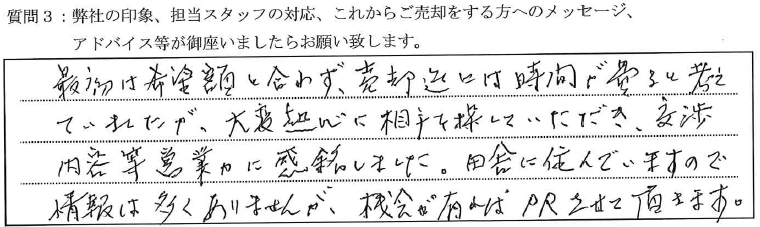 質問3:弊社の印象、担当スタッフの対応、これからご売却をする方へのメッセージ、
アドバイス等が御座いましたらお願い致します。
最初は希望額と合わず、売却迄には時間が費ると考え
ていましたが、大変熱心に相手を探していただき、交渉
内容等営業力に感銘しました。田舎に住んでいますので
情報は多くありませんが、機会が有ればPRさせて頂きます。